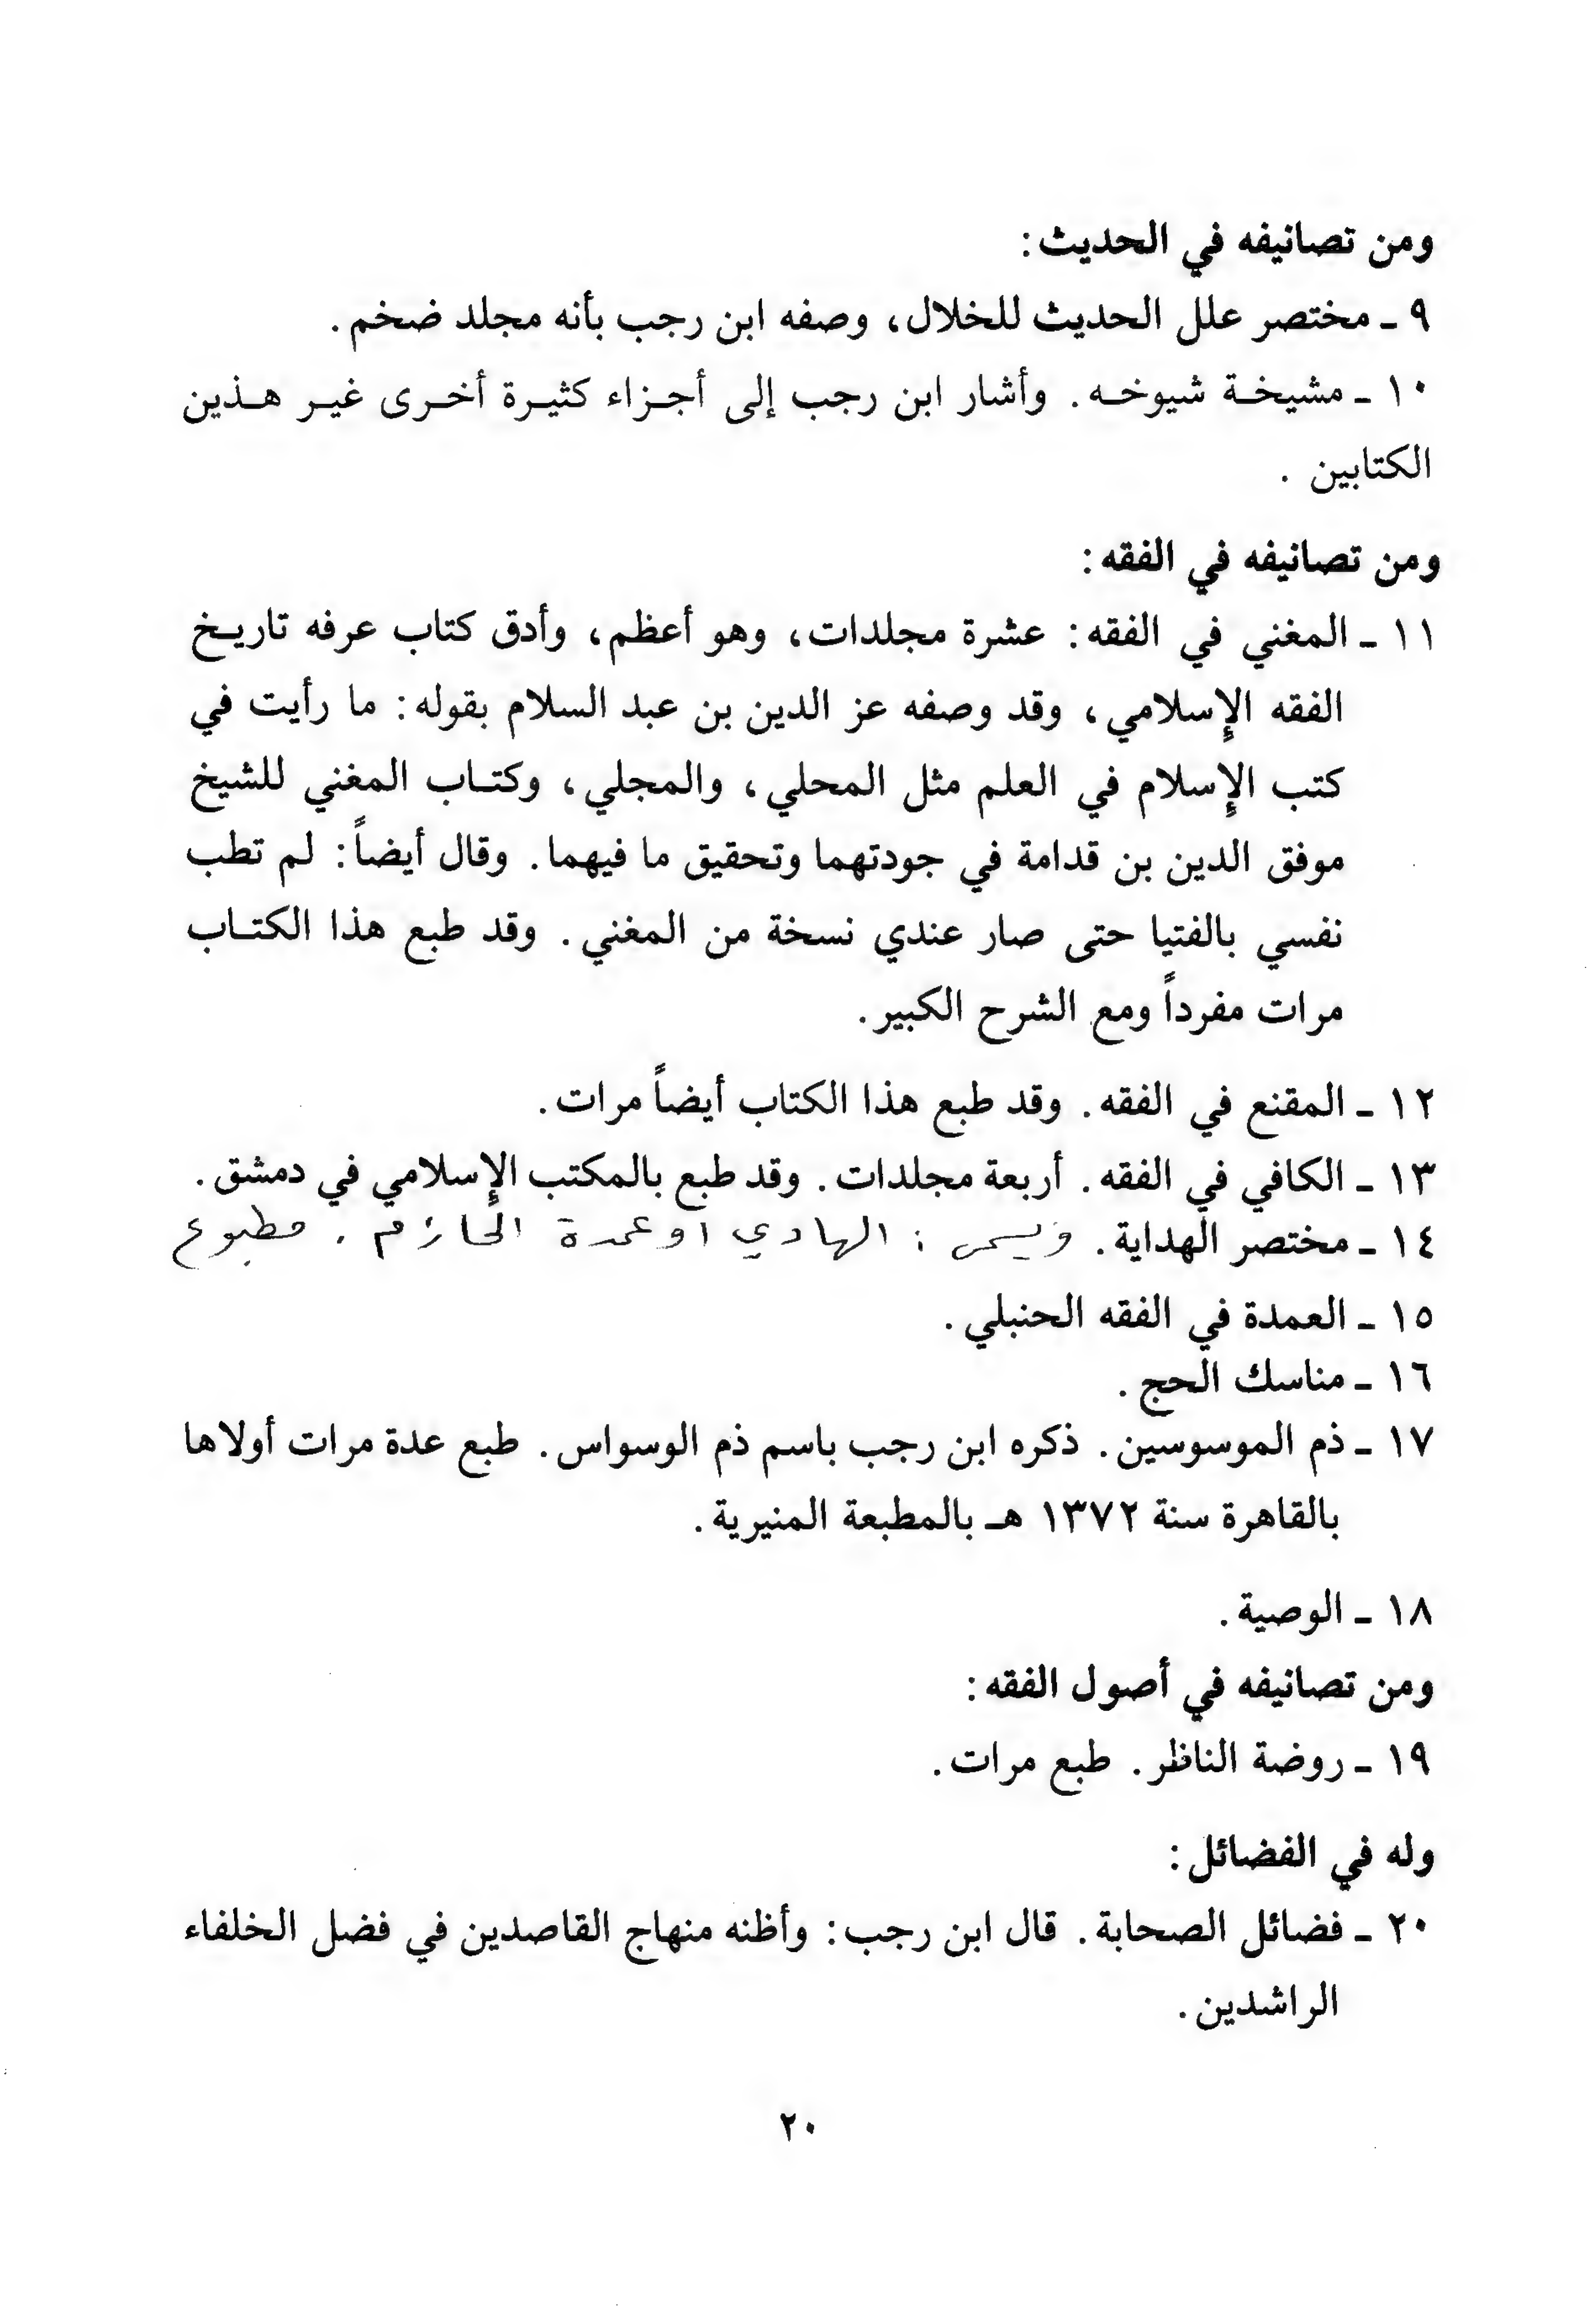 ومن تصانيفه في الحديث:
٩ ـ مختصر علل الحديث للخلال، وصفه ابن رجب بأنه مجلد ضخم.
١٠ ـ مشيخة شيوخه. وأشار ابن رجب إلى أجزاء كثيرة أخرى غير هذين
الكتابين.
ومن تصانيفه في الفقه:
١١ ـ المغني في الفقه: عشرة مجلدات، وهو أعظم، وأدق كتاب عرفه تاريخ
الفقه الإسلامي، وقد وصفه عز الدين بن عبد السلام بقوله: ما رأيت في
كتب الإسلام في العلم مثل المحلي، والمجلي، وكتاب المغني للشيخ
موفق الدين بن قدامة في جودتهما وتحقيق ما فيهما. وقال أيضاً: لم تطب
نفسي بالفتيا حتى صار عندي نسخة من المغني. وقد طبع هذا الكتاب
مرات مفرداً ومع الشرح الكبير.
١٢ ـ المقنع في الفقه. وقد طبع هذا الكتاب أيضاً مرات.
١٣ ـ الكافي في الفقه. أربعة مجلدات. وقد طبع بالمكتب الإسلامي في دمشق.
١٤ ـ مختصر الهداية. ويسمى: الهادي او عمدة الحازم. مطبوع
١٥ ـ العمدة في الفقه الحنبلي.
١٦ ـ مناسك الحج.
١٧ ـ ذم الموسوسين. ذكره ابن رجب باسم ذم الوسواس. طبع عدة مرات أولاها
بالقاهرة سنة ١٣٧٢ هـ بالمطبعة المنيرية.
١٨ ـ الوصية.
ومن تصانيفه في أصول الفقه:
١٩ ـ روضة الناظر. طبع مرات.
وله في الفضائل:
٢٠ ـ فضائل الصحابة. قال ابن رجب: وأظنه منهاج القاصدين في فضل الخلفاء
الراشدين.
٢٠